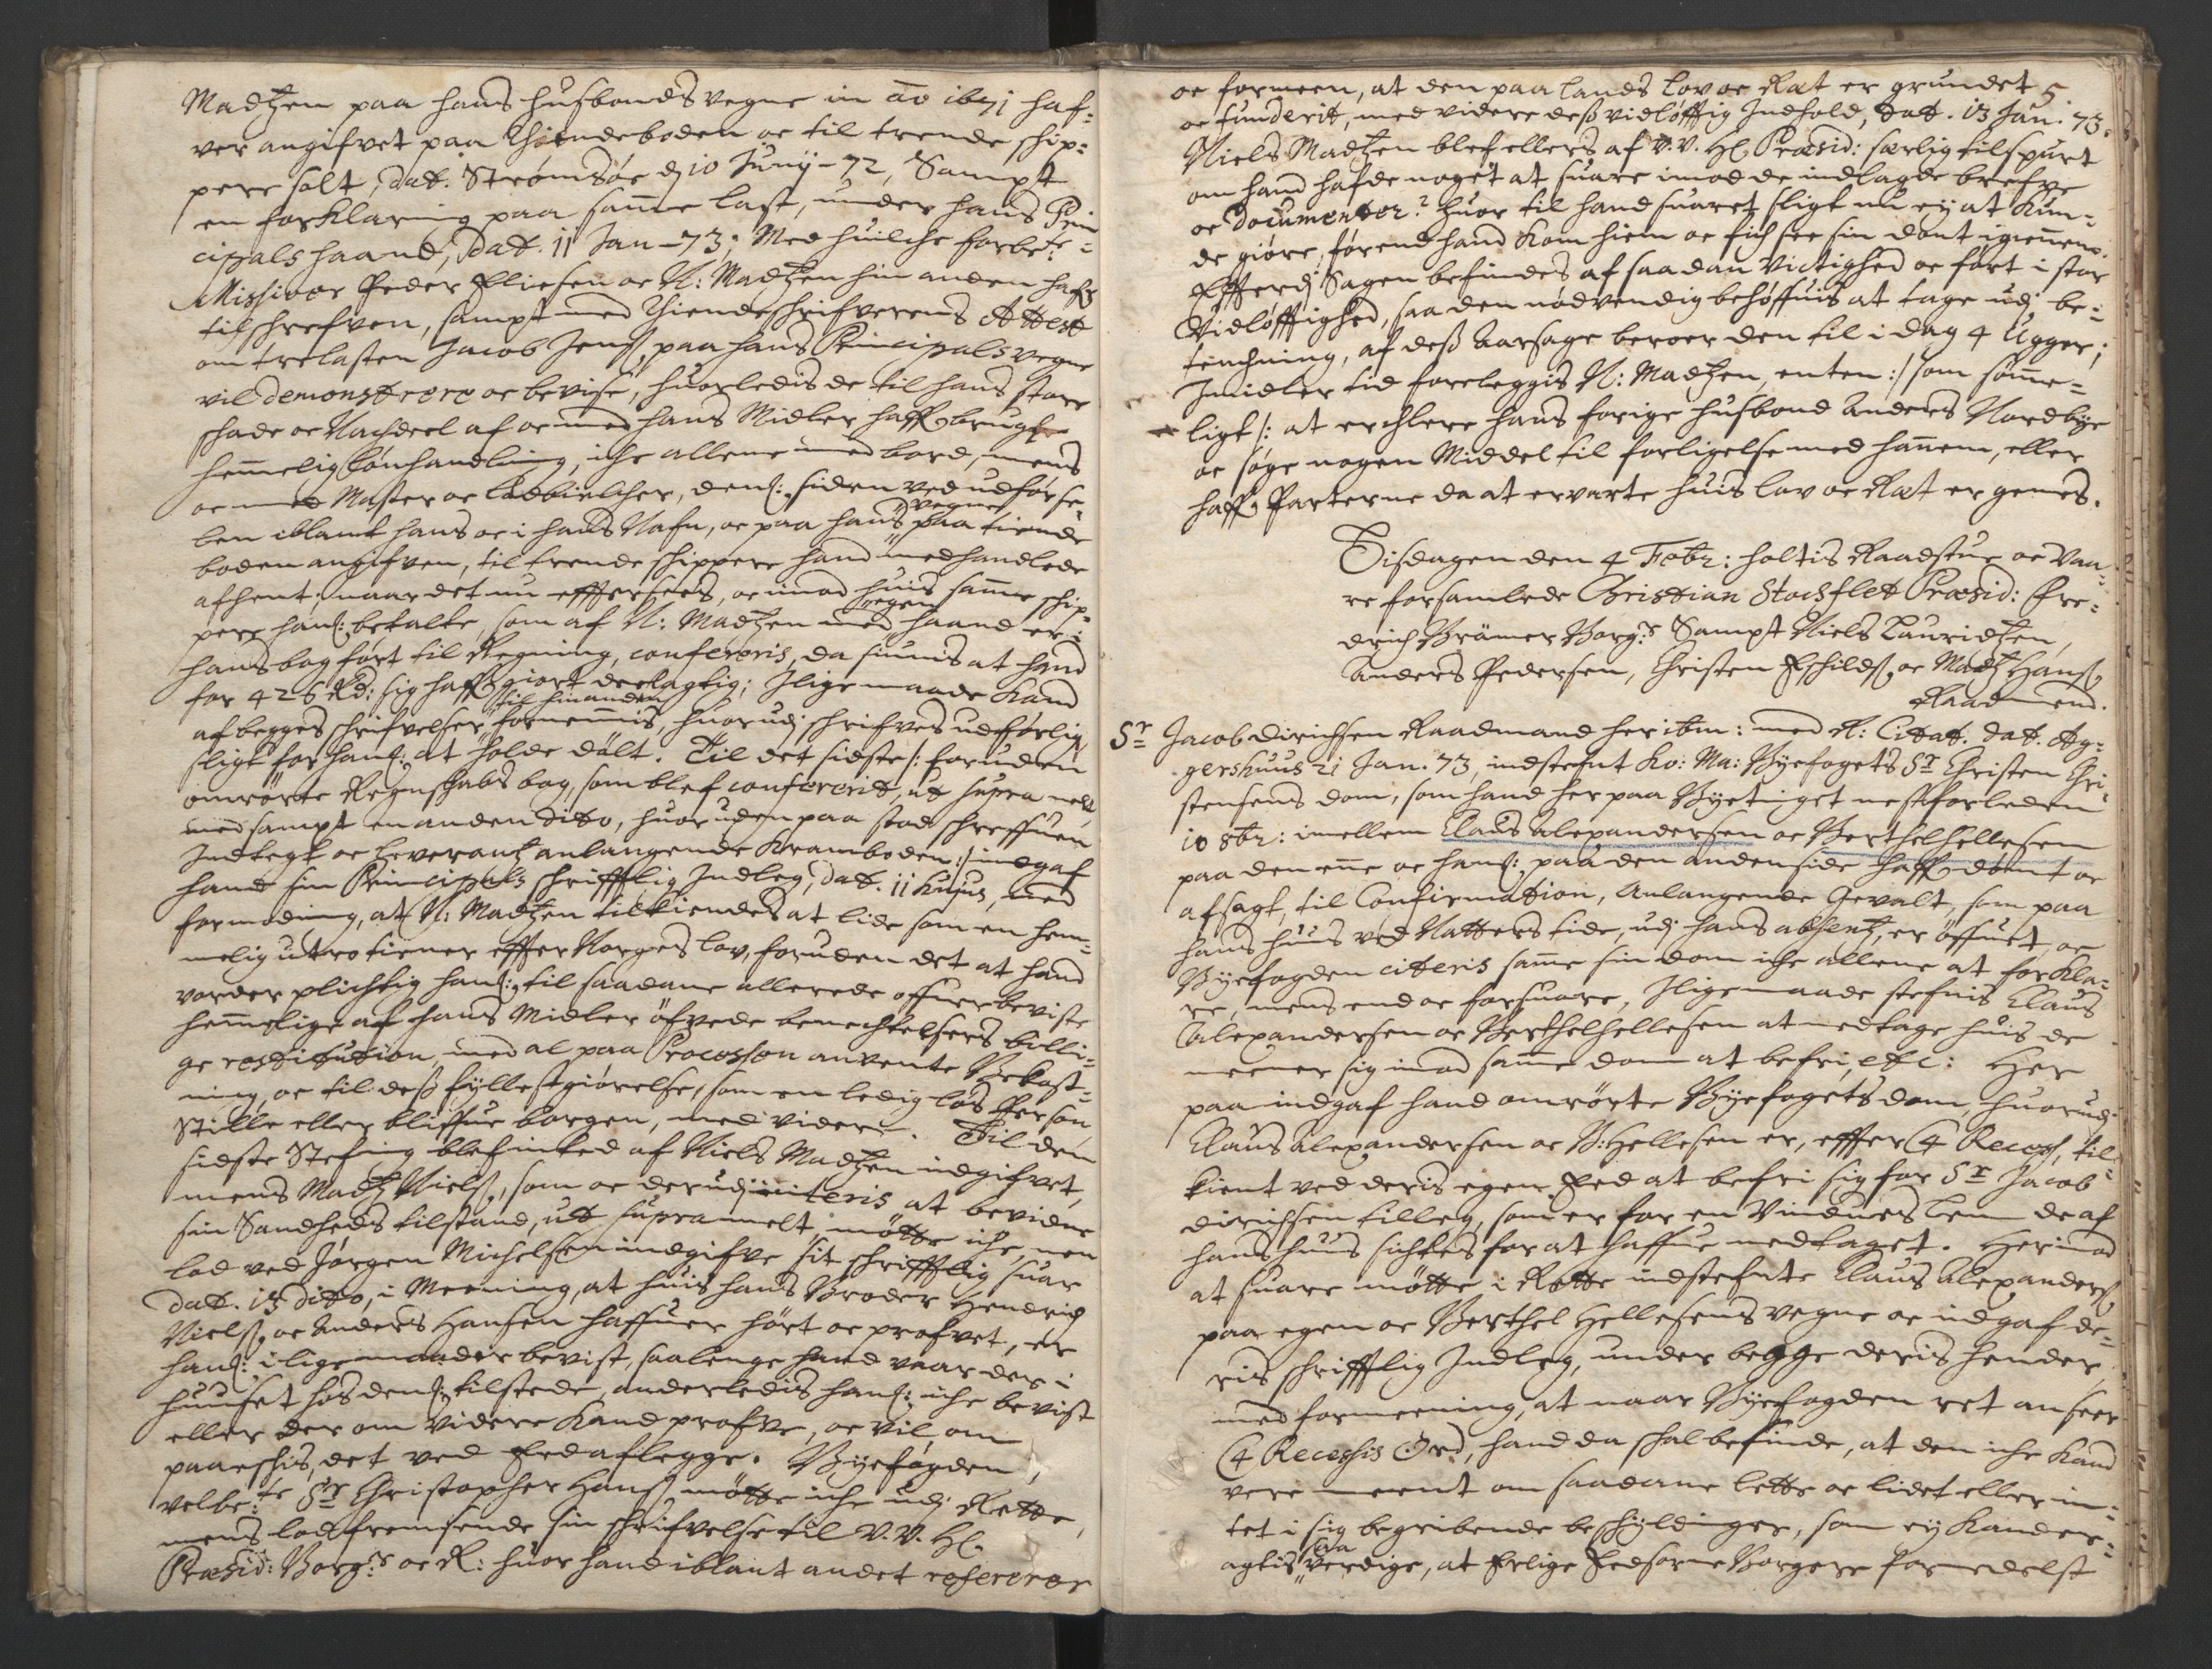 Madtzen paa hans husbonds vegne in ao 1671 haf-
ver angifvet paa Tiendeboden oc til trende skip-
pere solt, dat. Strømsøe d 10 Juny -72, Sampt
en forklaring paa samme last, under hans Prin
cipals haand, dat. 11 Jan -73; Med huilche forbete:
Missiver Peder Eliesen oc N: Madtzen hin anden hafr
tilschrefven, sampt med Tiendeschrifverens Attest
om trelasten Jacob Jenss paa hans Principals vegne
vil demonstrere oc bevise, huorledis de til hans store
schade oc Nachdeel af oc med hans Midler haffr brugt
hemmelig Lønhandling, iche allene med bord, mens
oc med Master oc Ladbielcher, dens: siden ved udførse-
len iblant hans oc i hans Nafn, oc paa hans vegne paa tiende
boden angifven, til trende schippere hand med handlede
afhent; naar det nu effterseės, oc imod huis samme schip-
pere hans: betalte, som af N: Madtzen med egen haand er i
hans bog ført til Regning, confereris, da fiunis at hand
for 426 Rd: sig haffr giort deelagtig; Ilige maade kand
af begges schrifvelser til hinanden fornemmis, huorudj schrifves udførlig
sligt for hans: at holde dölt. Til det sidste /: foruden
omrørte Regnschabs bog, som blef confererit, ut supra melt
med sampt en anden dito, huor uden paa stod schreffuen
Indtegt oc Leverantz anlangende Kramboden :/ indgaf
hand sin Principals schrifftlig Indleg, dat. 11 hujus, med
formoding, at N: Madtzen tilkiendes at lide som en hem-
melig utro tiener effter Norges lov, foruden det at hand
vorder plichtig hans: til saadane allerede offuerbeviste
hemmelige af hans Midler öfvede bemechtelsers billi-
ge restitution, med al paa Processen anvente Bekost-
ning, oc til dess fyllestgiørelse, som en ledig løs Person
Stille eller bliffue borgen, med videre. Til den
sidste Stefning blef inted af Niels Madtzen indgifvet,
mens Madtz Nielss, som oc derudj citeris at bevidne
sin Sandheds tilstand, ut supra melt, mötte iche, men
lod ved Jørgen Michelsen indgifve sit schrifftlig suar
dat. 13 dito, i Meening, at huis hans Broder Hendrich
Nielss oc Anders Hansen haffuer hört oc profvet, er
hans: i lige maader bevist, saalenge hand vaar der i
huuset hos dens: tilstede, anderledis hans: iche bevist
eller der om videre kand profve, oc vil om
paaeschis, det ved Eed aflegge. Byefogden,
velbe:te Sr Christopher Hanss mötte iche udj Rette,
mens lod fremsende sin schrifvelse til V. V. Hr
Præsid: Borg:r oc R: huor hand iblant andet refererer
oc formeen, at den paa Lands Lov oc Ræt er grundet 5
oc funderit, med videre dess vidløfftig Indhold, dat. 13 Jan. 73.
Niels Madtzen blef ellers af V. V. Hr Præsid: særlig tilspurt
om hand hafde noget at suare imod de indlagde brefve
oc documenter? huor til hand suaret sligt nu ey at kun-
de giøre, førend hand kom hiem oc fich see sin dont igiennem.
Efferdj Sagen befindes af saadan Victighed oc fört i stor
Vidløfftighed, saa den nødvendig behöffuis at tage udj be-
tenchning, af dess Aarsage beroer den til i dag 4 Ugger;
Imidler tid foreleggis N: Madtzen, enten :/ som sømme-
ligt /: at erchlere hans forige husbond Anders Nordbye
oc søge nogen Middel til forligelse med hannem, eller
haffr Parterne da at ervarte huis lov oc Ræt er gemes.
Tisdagen den 4 Febr: holtis Raadstue oc vaa-
re forsamlede Christian Stochflet Præsid: Fre-
drich Brämer Borg:r Sampt Niels Lauridtzen
Anders Pedersen, Christen Eschildss oc Madtz Hanss
Raadmend.
Sr Jacob Dirichsen Raadmand her ibm: med R: Citat. dat. Ag-
gershuus 21 Jan. 73, indstefnt Ko: Ma: Byefogets Sr Christen Chri-
stensens dom, som hand her paa Byetinget nestforleden
10 8br: imellem Claus Alexandersen oc Berthel Hellesem
paa den enne oc hans: paa den anden side haffr dömt oc
afsagt, til Confirmation, Anlangende Gevalt, som paa
hans huus ved Natters tide, udj hans absentz, er öffuet, oc
Byefogden citeris samme sin dom iche allene at forkla-
re, mens end oc forsuare, Ilige maade stefnis Claus
Alexandersen oc Berthel Hellesen at medtage huis de
meener sig imod samme dom at befri, etc: Her
paa indgaf hand omrörte Byefogets dom, huorudj
Claus Alexandersen oc B: Hellesen er, effter C4 Recess, til-
kient ved deris egen Eed at befri sig for Sr Jacob
Dirichsens tilleg, som er for en Vindues Lem de af
hans huus sichtes for at haffue medtaget. Herimod
at suare mötte i Rette indstefnte Claus Alexanderss
paa egen oc Berthel Hellesens vegne oc indgaf de-
ris schrifftlig Indleg, under begge deris hender,
med formeening, at naar Byefogden ret anseer
C4 Recessis Ord, hand da schal befinde, at den iche kand
vere meent om saadane lette oc lidet eller in-
tet i sig begribende beschyldinger, som ey kand er-
agtis saa verdige, at Erlige Eedsorne Borgere formedelst